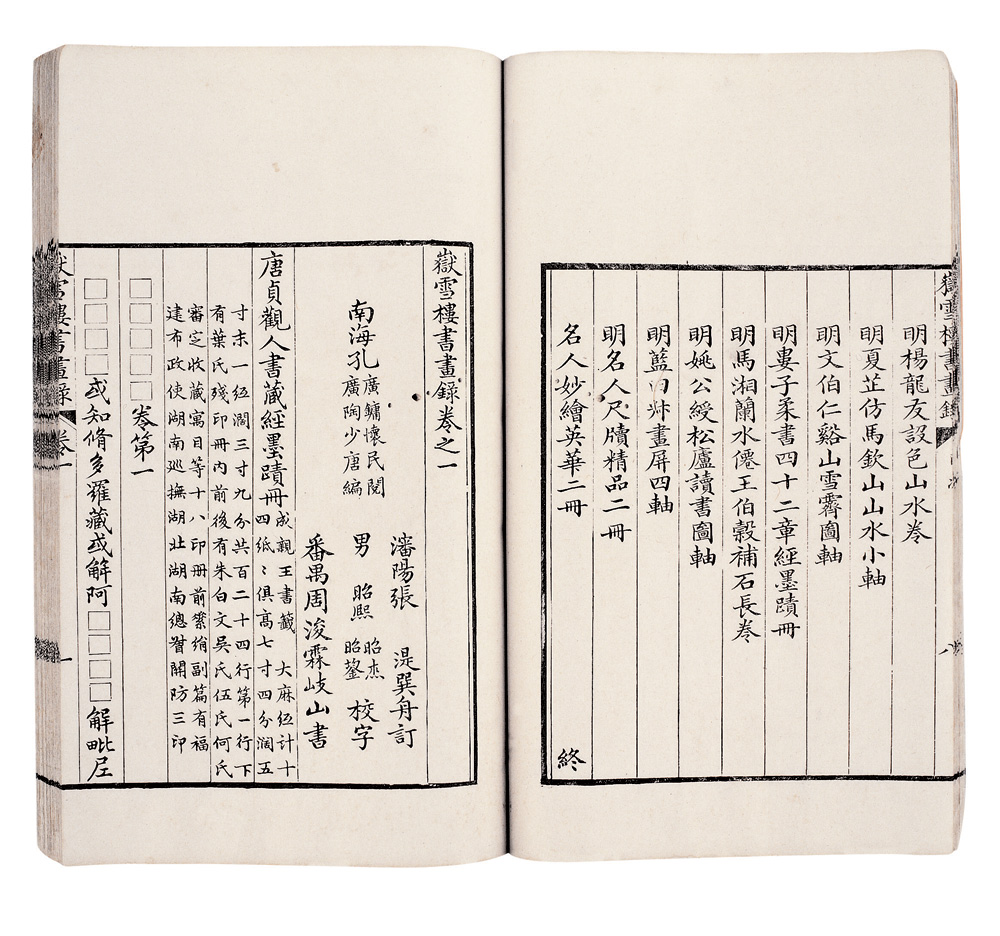 嶽雪樓書畫錄
明楊龍友設色山水卷
明夏芷仿馬欽山山水小軸
明文伯仁谿山雪霽圖軸
明婁子柔書四十二章經墨蹟冊
明馬湘蘭水僊王伯穀補石長卷
明姚公綬松廬讀書圖軸
明藍田叔畫屏四軸
明名人尺牘精品二冊
名人妙繪英華二冊
終
嶽雪樓書畫錄卷之一
瀋陽張 湜巽舟訂
南海孔
廣鏞懷民閱
廣陶少唐編
男
昭熙
昭杰
昭鋆
校字
番禺周浚霖岐山書
唐貞觀人書藏經墨蹟冊
成親王書籤 大麻紙計十
四紙〻俱高七寸四分濶五
寸末一紙濶三寸九分共百二十四行第一行下
有葉氏殘印冊內前後有朱白文吳氏伍氏何氏
審定收藏寓目等十八印冊前綮綃副篇有福
建布政使湖南巡撫湖北湖南總督關防三印
□□□□卷第一
□□□□或知脩多羅藏或解阿□□□□解毗尼
嶽雪樓書畫錄 卷一 一